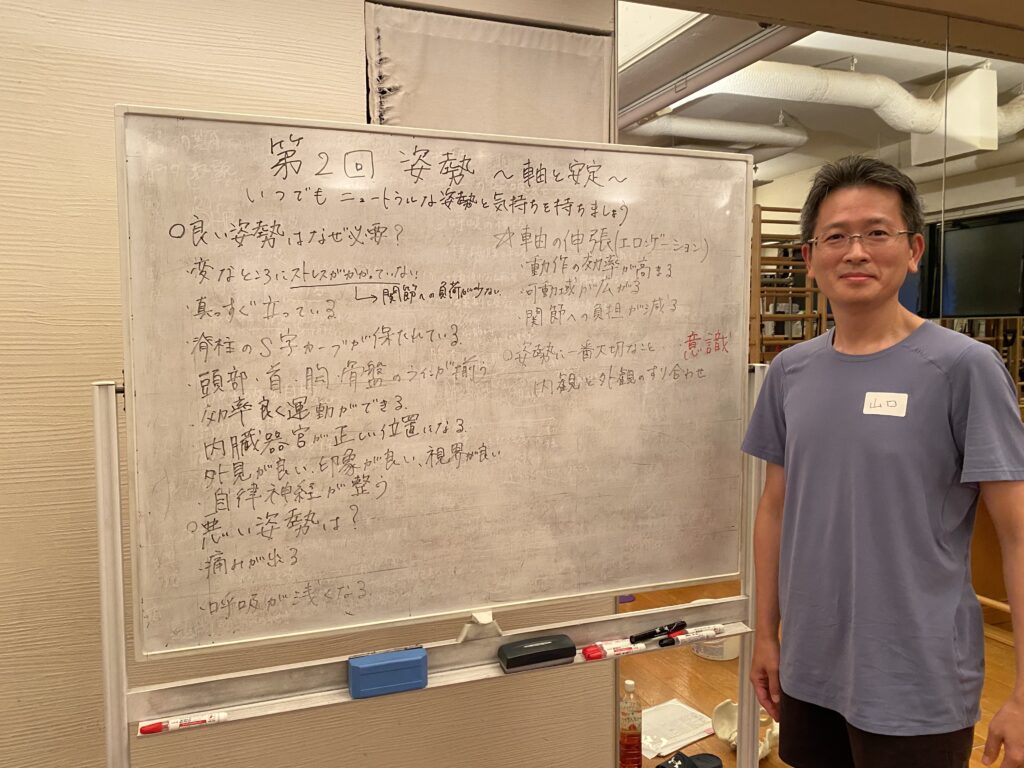 第2回 姿勢 ～軸と安定～
いつでもニュートラルな姿勢と気持ちを持ちましょう
○良い姿勢はなぜ必要？
・変なところにストレスがかかっていない
→関節への負荷が少ない
・真っすぐ立っている
・脊柱のS字カーブが保たれている
・頭部・首・胸・骨盤のラインが揃う
・効率良く運動ができる
・内臓器官が正しい位置になる
・外見が良い、印象が良い、視界が良い
・自律神経が整う
○悪い姿勢は？
・痛みが出る
・呼吸が浅くなる
☆軸の伸張(エロンゲーション)
・動作の効率が高まる
・可動域が広がる
・関節への負担が減る
○姿勢に一番大切なこと…意識
内観と外観のすり合わせ
山口